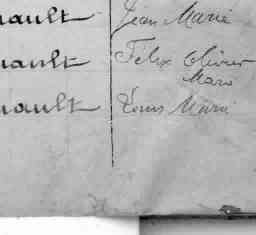 nault Jean Marie
nault Félix Olivier
Marc
nault Louis Marie